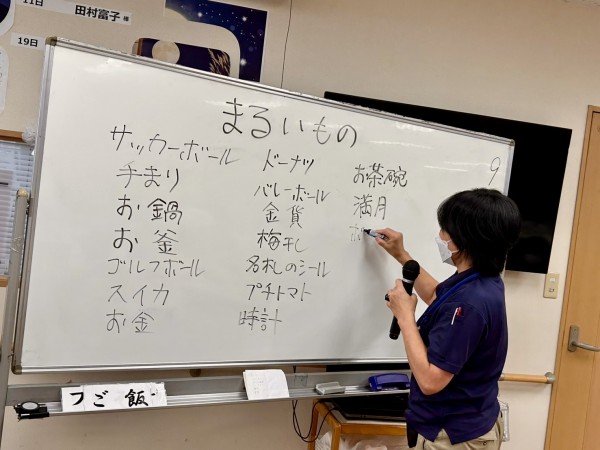 11日
田村富子様
19日
まるいもの
9
サッカーボール
手まり
お鍋
お釜
ゴルフボール
スイカ
お金
ドーナツ
バレーボール
金貨
梅干し
名札のシール
プチトマト
時計
お茶碗
満月
ご飯